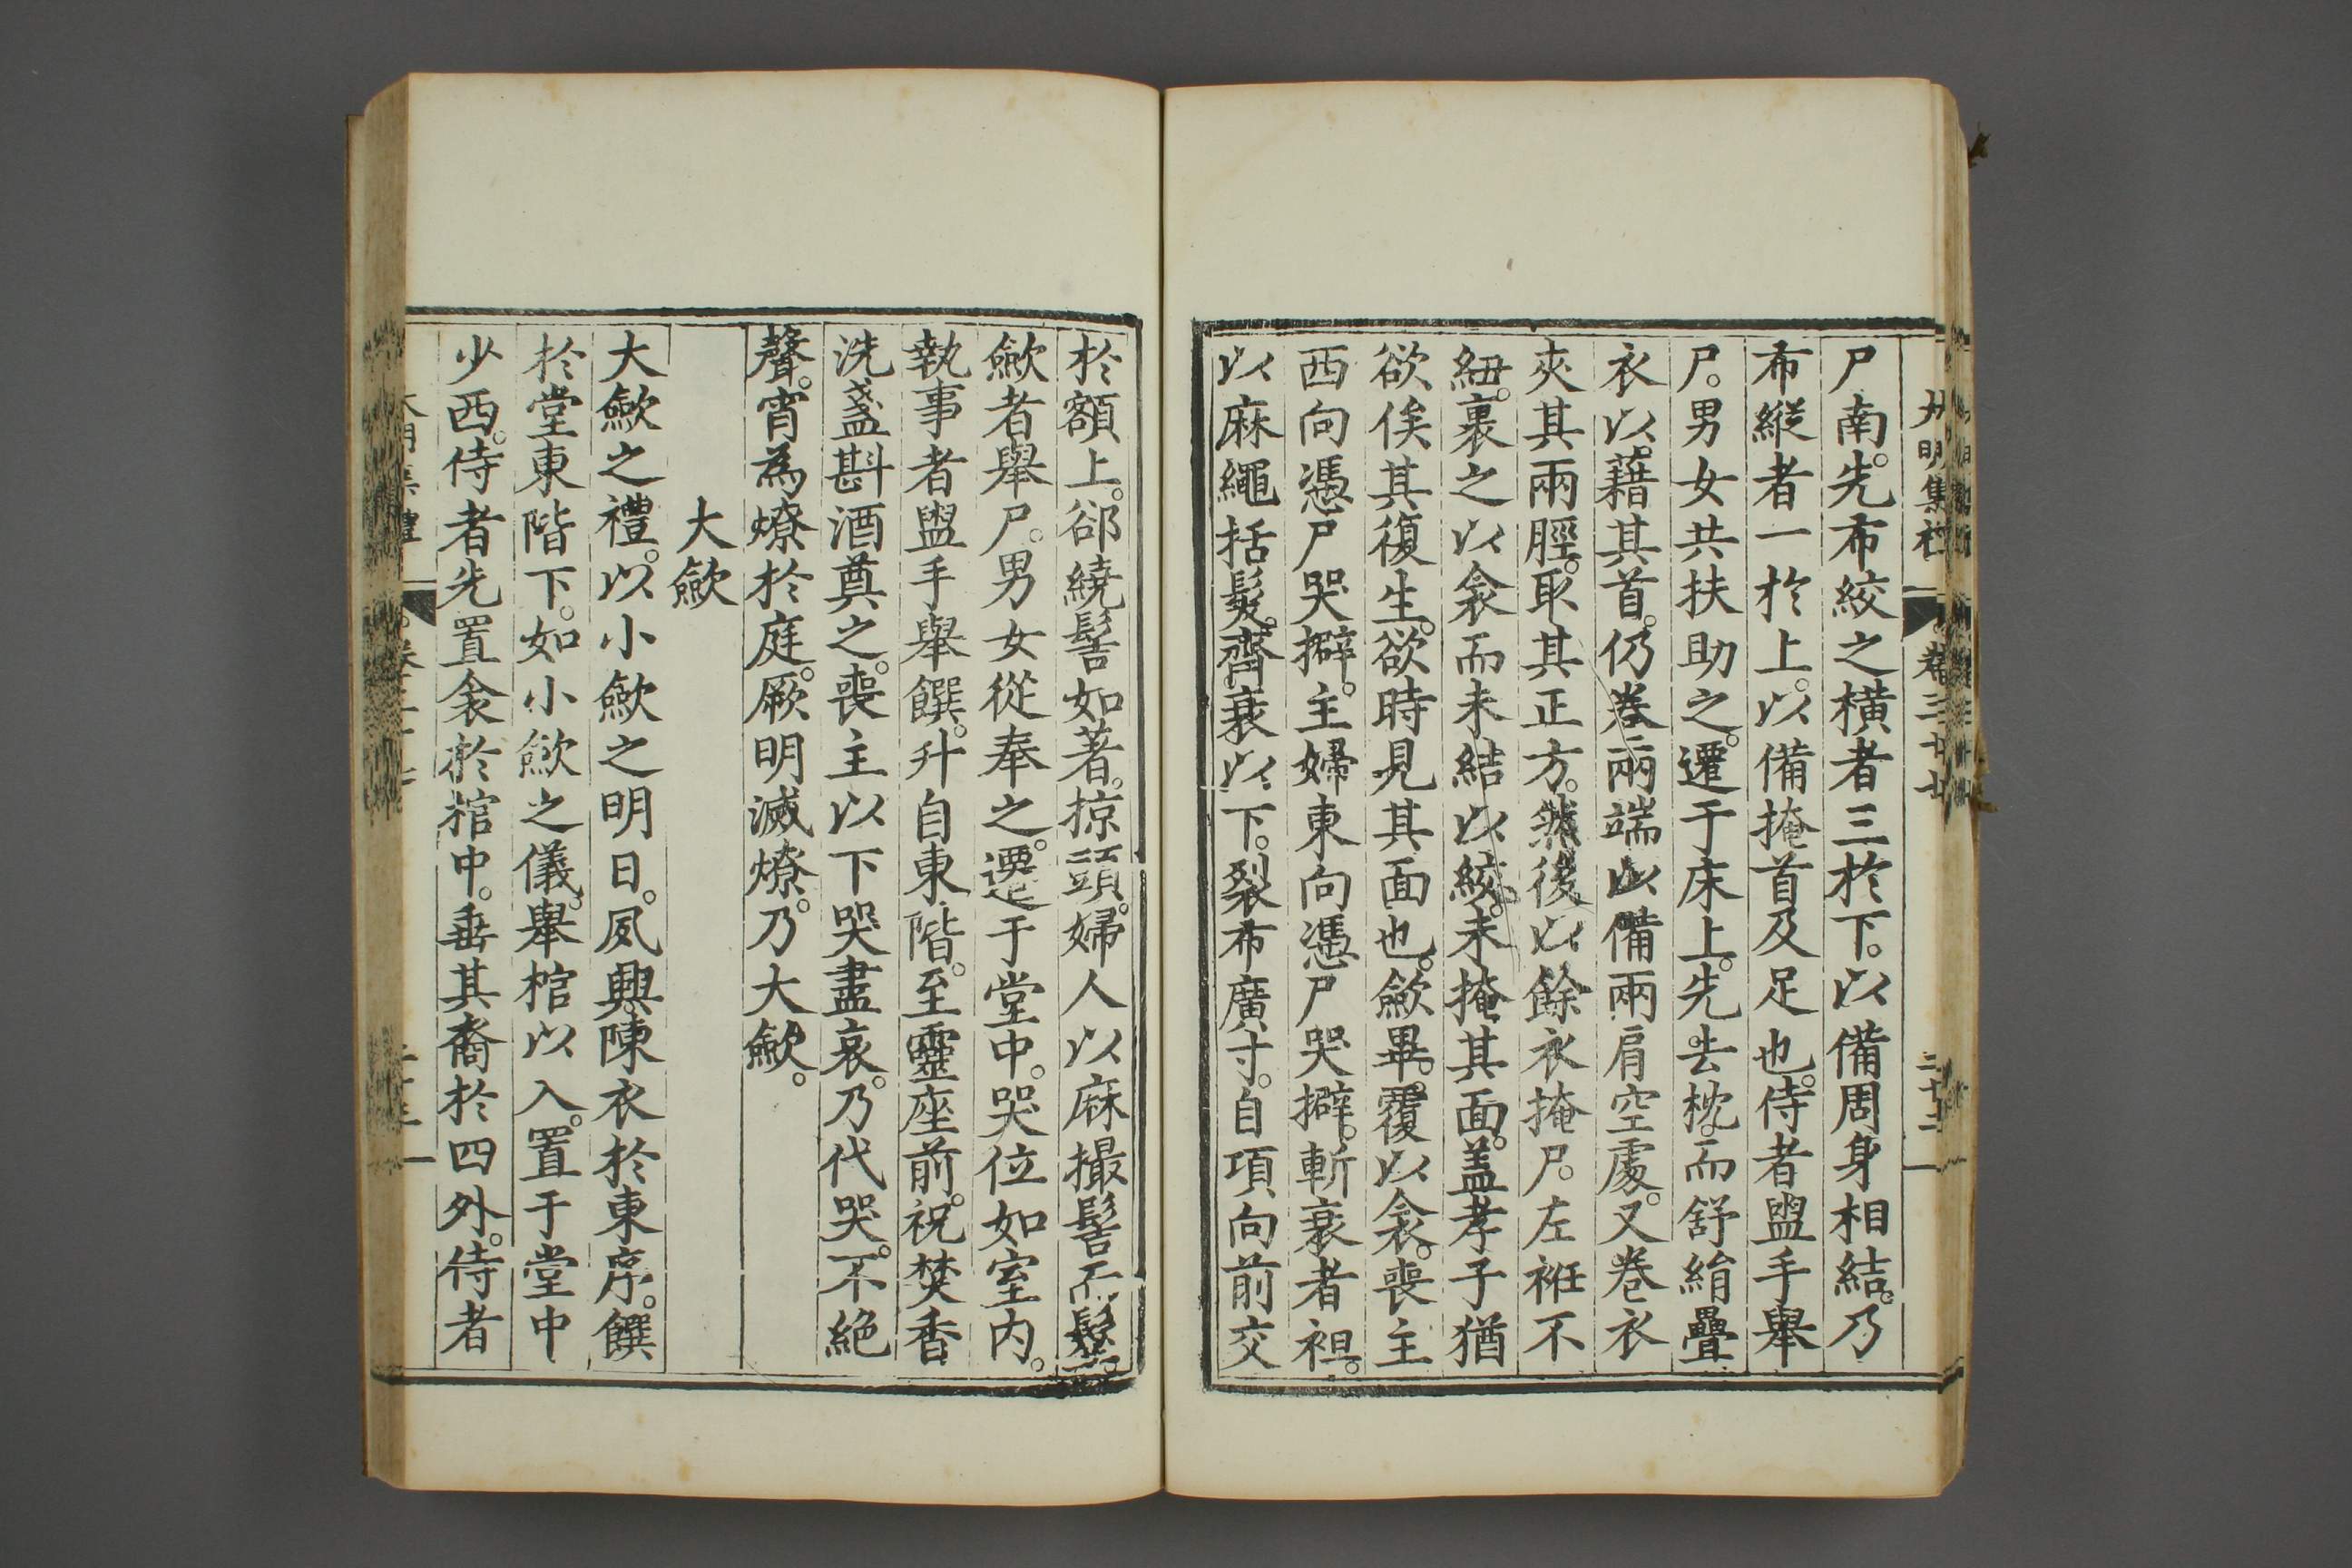 大明集礼 卷三十七 二十二
尸南。先布絞之橫者三於下。以備周身相結。乃
布縱者一於上。以備掩首及足也。侍者盥手舉
尸。男女共扶助之。遷于床上。先去枕。而舒絹疊
衣以。藉其首。仍卷兩端以備兩肩空處。又卷衣
夾其兩脛。取其正方。然後以餘衣掩尸。左袵不
紐。裹之以衾而未結以絞。未掩其面。蓋孝子猶
欲俟其復生。欲時見其面也。斂畢。覆以衾。喪主
西向憑尸哭擗。主婦東向憑尸哭擗。斬衰者袒。
以麻繩括髮。齊衰以下。裂布廣寸。自項向前交
於額上。卻繞髻如著。掠頭。婦人以麻撮髻而髽。
斂者舉尸。男女從奉之。遷于堂中。哭位如室内。
執事者盥手舉饌。升自東階。至靈座前。祝焚香
洗盞斟酒奠之。喪主以下哭盡哀。乃代哭。不絕
聲。宵為燎於庭。厥明滅燎。乃大斂。
大斂
大斂之禮。以小斂之明日。夙興。陳衣於東序。饌
於堂東階下。如小斂之儀。舉棺以入。置于堂中
少西。侍者先置衾於棺中。垂其裔於四外。侍者